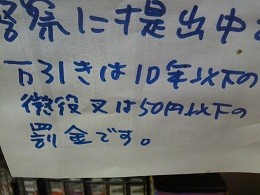 警察に提出中
万引きは10年以下の
懲役又は50円以下の
罰金です。